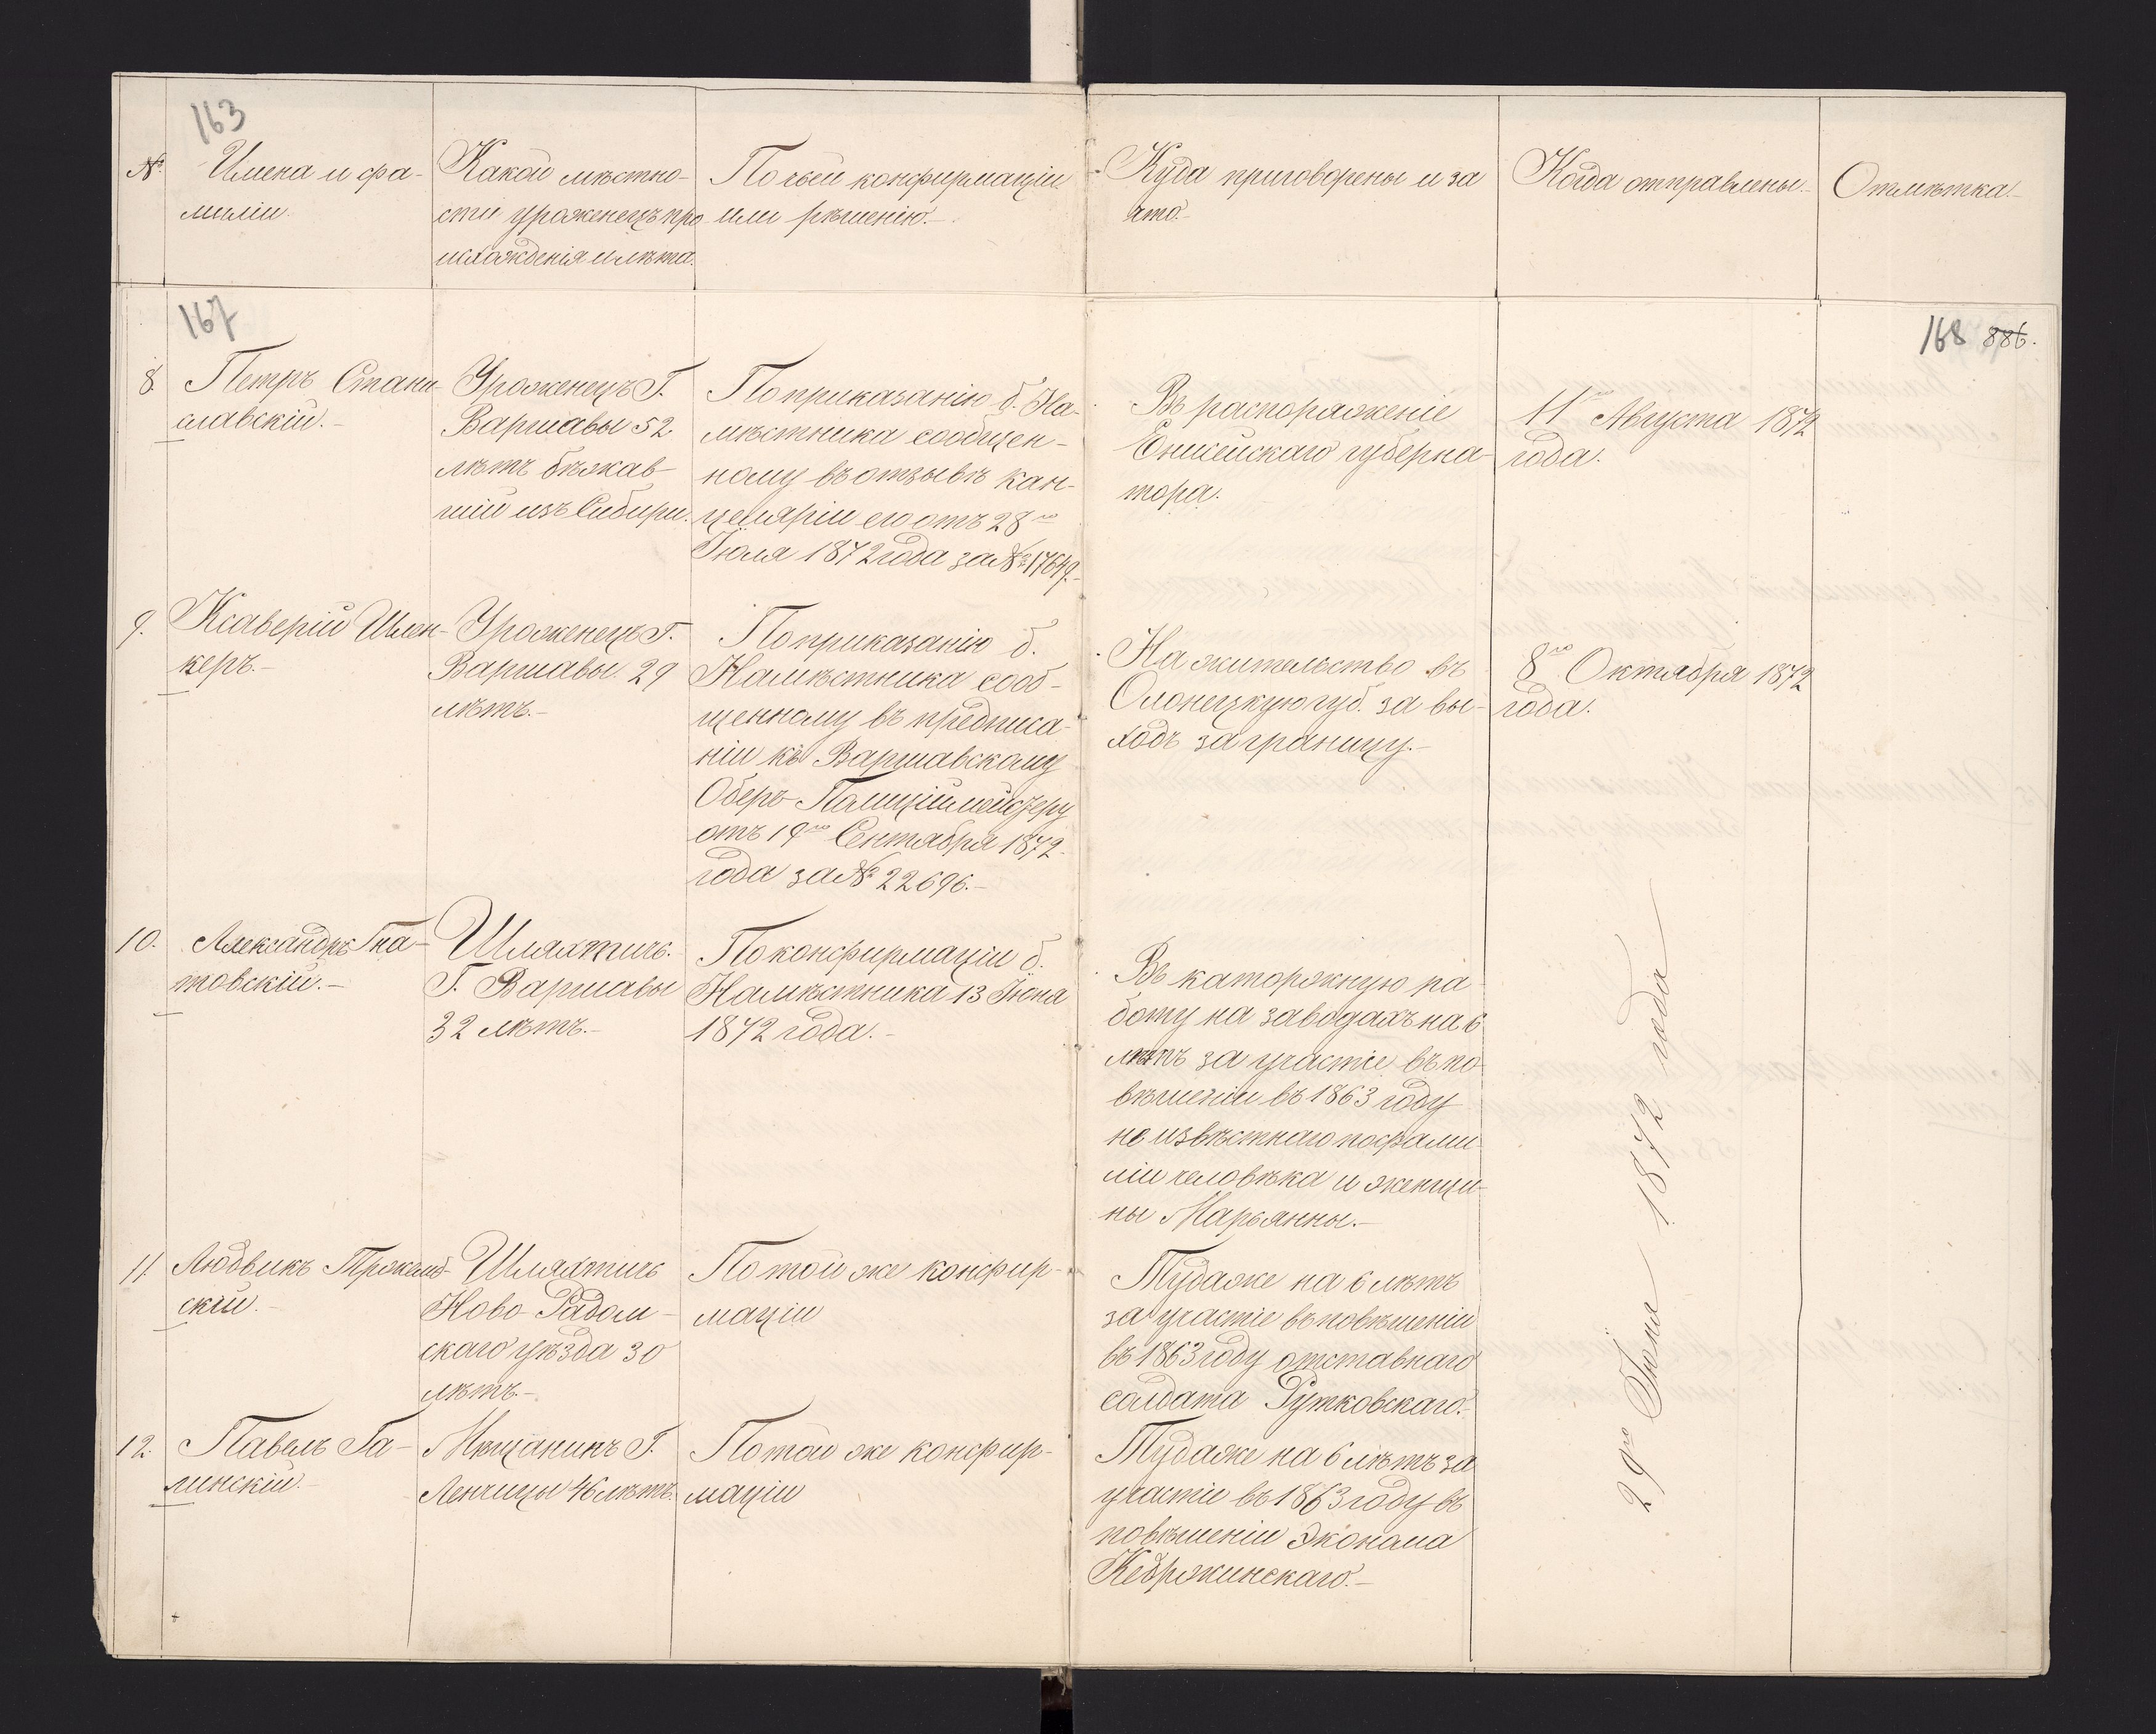 163
№ Имена и фа-
миліи.
Какой мѣстно-
сти уроженецъ про-
исхожденія и лѣта.
По чьей конфирмаціи
или рѣшенію.-
Куда приговорены и за
что.-
Когда отправлены.-
Отмѣтка.-
167
168 886.
8. Петръ Стани-
славскій.-
Уроженецъ Г.
Варшавы 52.
лѣтъ бѣжав-
шій изъ Сибири.
По приказанію б. На-
мѣстника сообщен-
ному въ отзывѣ кан-
целяріи его отъ 28го
Іюля 1872 года за № 17649.-
Въ распоряженіе
Енисейскаго губерна-
тора.
11го Августа 1872
года.
9. Ксаверій Шлен-
керъ.-
Уроженецъ Г.
Варшавы 29
лѣтъ.-
По приказанію б.
Намѣстника сооб-
щенному въ предписа-
ніи къ Варшавскому
Оберъ-Полиціймейстеру
отъ 19го Сентября 1872
года за № 22696.-
На жительство въ
Олонецкую губ. за вы-
ходъ заграницу.-
8го Октября 1872
года.
10. Александръ Гна-
товскій.-
Шляхтичъ.
Г. Варшавы
32 лѣтъ.-
По конфирмаціи б.
Намѣстника 13 Іюна
1872 года.-
Въ каторжную ра-
боту на заводахъ на 6
лѣтъ за участіе въ по-
вѣшеніи въ 1863 году
не извѣстнаго по фами-
ліи человѣка и женщи-
ны Марьянны.-
29го Іюна 1872 года
11. Людвикъ
скій.-
Шляхтичъ
Ново-Радом-
скаго уѣзда 30
лѣтъ.-
По той же конфир-
маціи
Туда же на 6 лѣтъ
за участіе въ повѣшеніи
въ 1863 году отставнаго
солдата Рутковскаго.-
12. Павелъ Га-
линскій.-
Мѣщанинъ Г.
Ленчицы 46 лѣтъ.
По той же конфир-
маціи
Туда же на 6 лѣтъ за
участіе въ 1863 году въ
повѣшеніи Эконома
Кедржинскаго.-